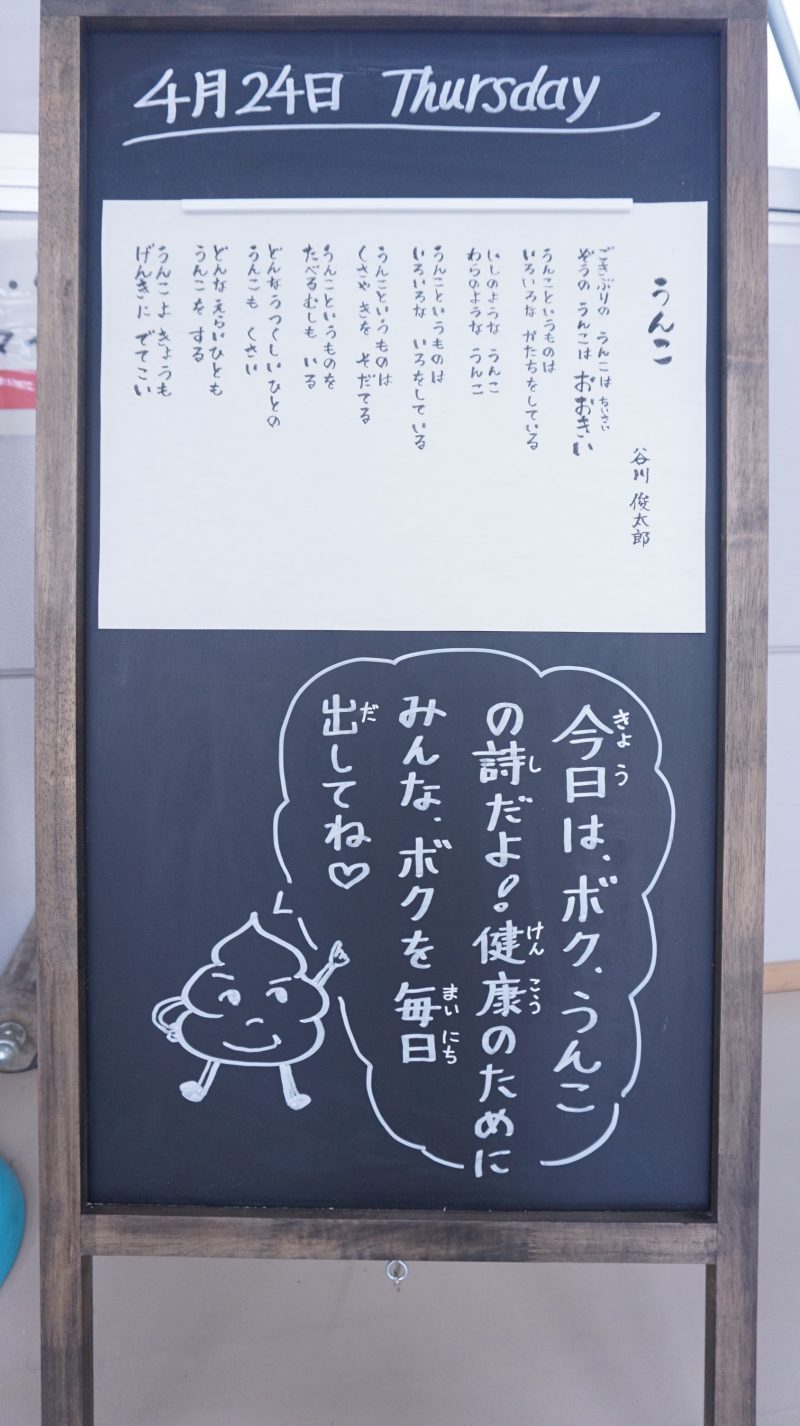 4月24日 Thursday
うんこ
谷川 俊太郎
ごきぶりの うんこは ちいさい
ぞうの うんこは おおきい
うんこというものは
いろいろな かたちをしている
いしのような うんこ
わらのような うんこ
うんこというものは
いろいろな いろをしている
うんこというものは
くさや きを そだてる
うんこというものを
たべるむしも いる
どんなうつくしいひとの
うんこも くさい
どんなえらいひとも
うんこを する
うんこよ きょうも
げんきに でてこい
今日は、ボク、うんこ
きょう
の詩だよ!健康のために
し けんこう
みんな、ボクを毎日
まいにち
出してね♡
だ